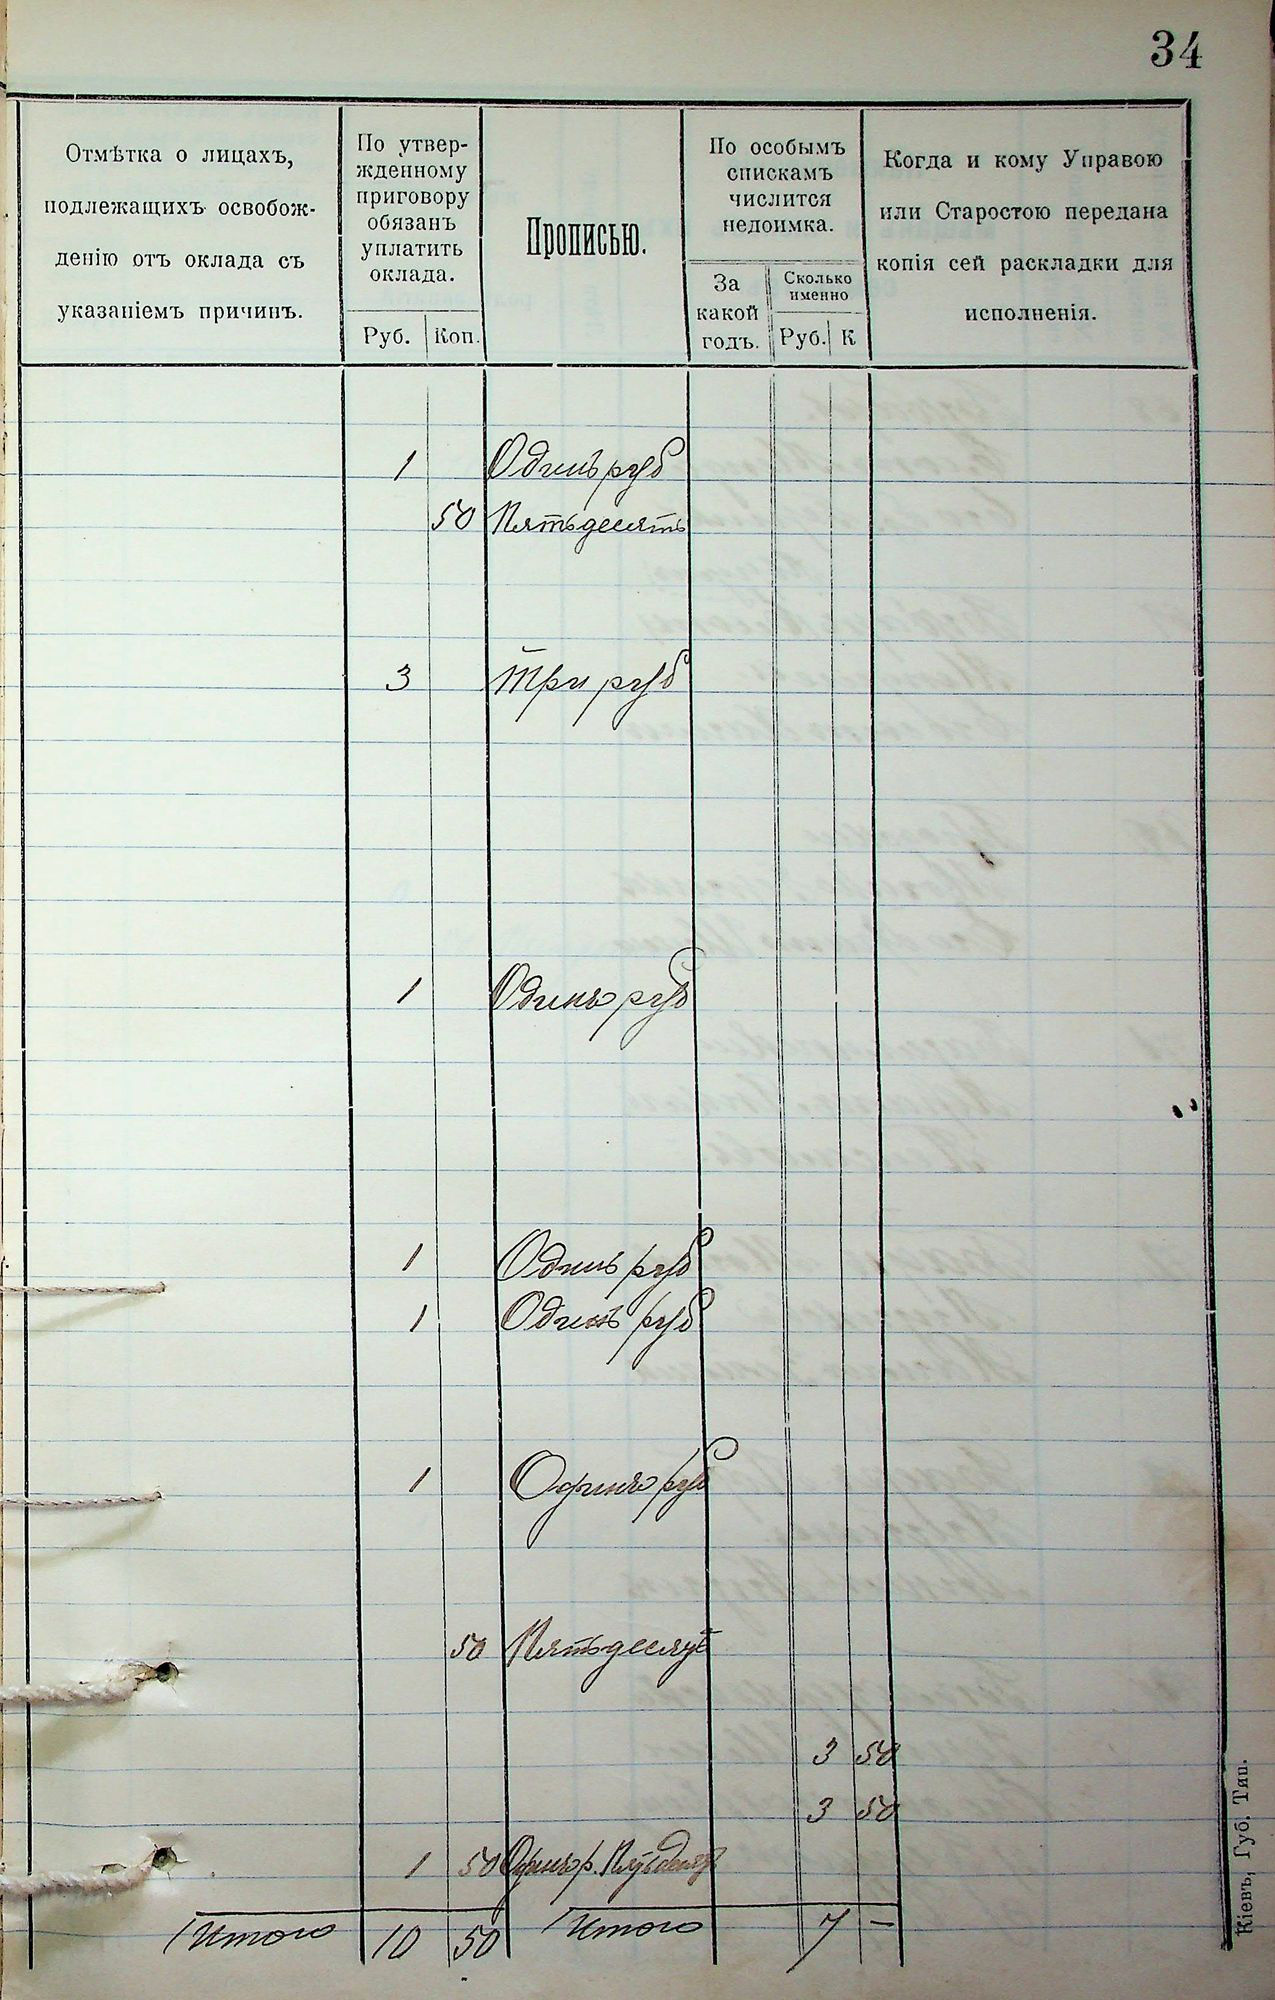 34
Отмѣтка о лицахъ,
подлежащихъ освобож-
денію отъ оклада съ
указаніемъ причинъ.
По утвер-
жденному
приговору
обязанъ
уплатить
оклада.
Руб. Коп.
Прописью.
По особымъ
спискамъ
числится
недоимка.
За
какой
годъ.
Сколько
именно
Руб. К
Когда и кому Управою
или Старостою передана
копія сей раскладки для
исполненія.
1 Одинъ руб
50 Пятьдесятъ
3 Три руб
1 Одинъ руб
1 Одинъ руб
1 Одинъ руб
1 Одинъ руб
50 Пятьдесят
3 50
3 50
1 50 Одинъ р. Пятьдесят
Итого 10 50 Итого 7 —
Кіевъ, Губ. Тип.